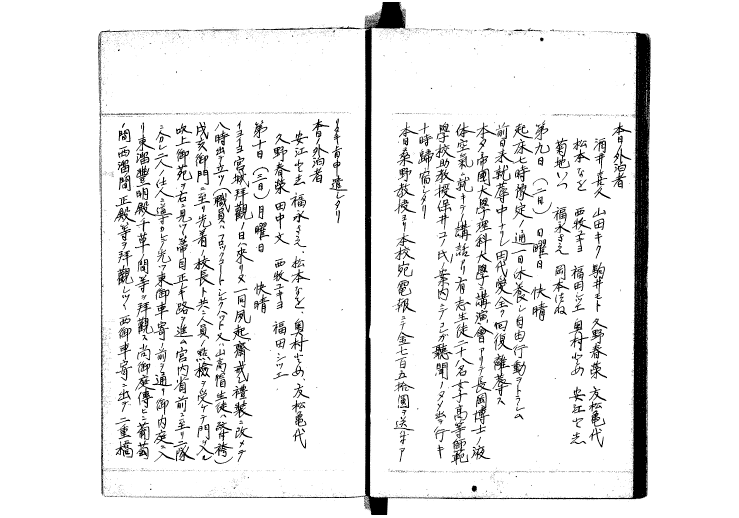 本日外泊者
酒井喜久 山田キク 駒井モト 久野春菜 友松亀代
松本なを 西牧ユキヨ 福田シツエ 奥村とめ 安江とし
菊地いつ 福永さえ 岡本はね
第九日(二日)日曜日 快晴
起床七時豫定ノ通一日休養トシ自由行動ヲトラシム
前日来就蓐中ナリシ田代愛全ク回復離蓐ス
本夕帝國大學理科大學ニ講演會アリテ長岡博士ノ液
体空氣ニ就キテノ講話アリ有志生徒二十八名女子高等師範
學校助教授保井コノ氏ノ案内ニテコレガ聽聞ノタメ出テ行キ
十時歸宿シタリ
本日桑野教授ヨリ本校宛電報ニテ金七百五拾圓ヲ送ルヤ
リタキ旨申遣シタリ
本日外泊者
安江とし 福永さえ 松本なを 奥村とめ 友松亀代
久野春菜 田中文 西牧ユキヨ 福田シツエ
第十日(三日)月曜日 快晴
イヨイヨ宮城拝觀ノ日ハ来リヌ一同夙起齋戒禮装ニ改メテ
八時出テ立ツ(職員ハフロックコートシルクハット又ハ山高帽生徒ハ袴)
戌亥御門ニ至リ先着ノ校長ト共ニ人員ノ點檢ヲ受ケテ門ヲ入ル
吹上御苑ヲ右ニ見ツヽ帯目正シキ路ヲ進ミ宮内省前ニ至リ二隊
ニ分レ六ノ仕人ニ導カレテ先ツ東御車寄ノ前ヲ通リ御内庭ニ入
リ東溜豐明殿千草ノ間等ヲ拝觀ス尚御庭傳ヒニ葡萄
ノ間西溜間正殿等ヲ拝觀シツヽ西御車寄ニ出デ二重橋